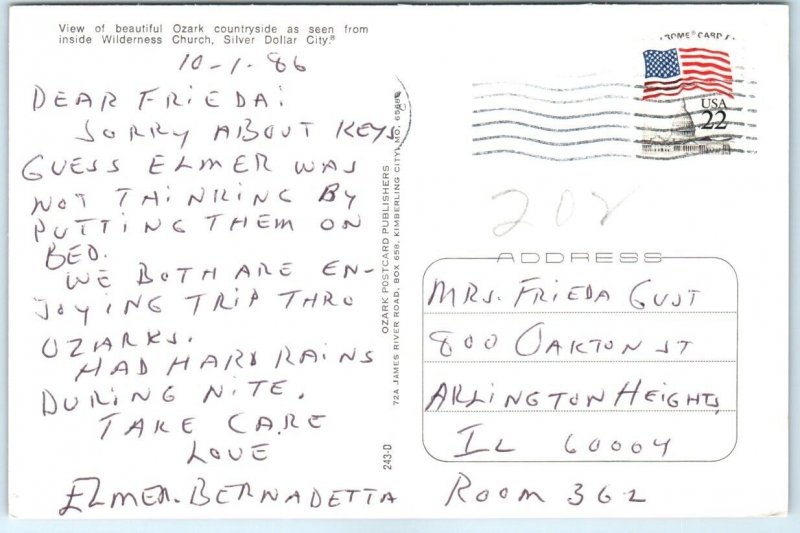 View of beautiful Ozark countryside as seen from
inside Wilderness Church, Silver Dollar City.®
10-1-86
DEAR FRIEDA:
SORRY ABOUT KEYS
GUESS ELMER WAS
NOT THINKING BY
PUTTING THEM ON
BED.
WE BOTH ARE EN-
JOYING TRIP THRO
OZARKS.
HAD HARD RAINS
DURING NITE.
TAKE CARE
LOVE
ELMER-BERNADETTA
243-D
OZARK POSTCARD PUBLISHERS
72A JAMES RIVER ROAD, BOX 658, KIMBERLING CITY, MO.
CARD
USA
22
202
ADDRESS
MRS. FRIEDA GUST
800 OAKTON ST
ARLINGTON HEIGHTS,
IL 60004
ROOM 362